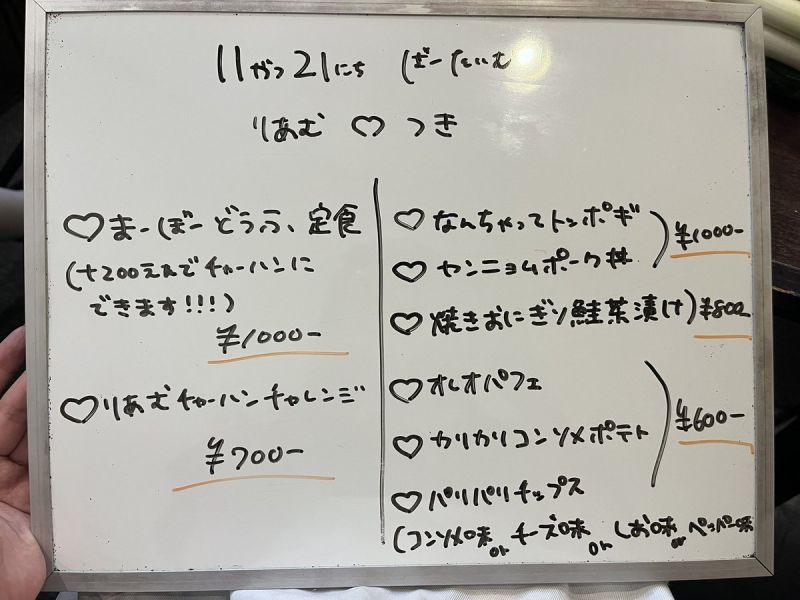 11がつ21にち ばーたいむ
りあむ ♡ つき
♡まーぼーどうふ、定食
(+200えんでチャーハンに
できます!!!)
¥1000-
♡りあむチャーハンチャレンジ
¥700-
♡なんちゃってトッポギ
♡ヤンニョムポーク丼
¥1000-
♡焼きおにぎり鮭茶漬け)¥800
♡オレオパフェ
♡カリカリコンソメポテト
¥600-
♡パリパリチップス
(コンソメ味 or チーズ味 or しお味 or ペッパー味